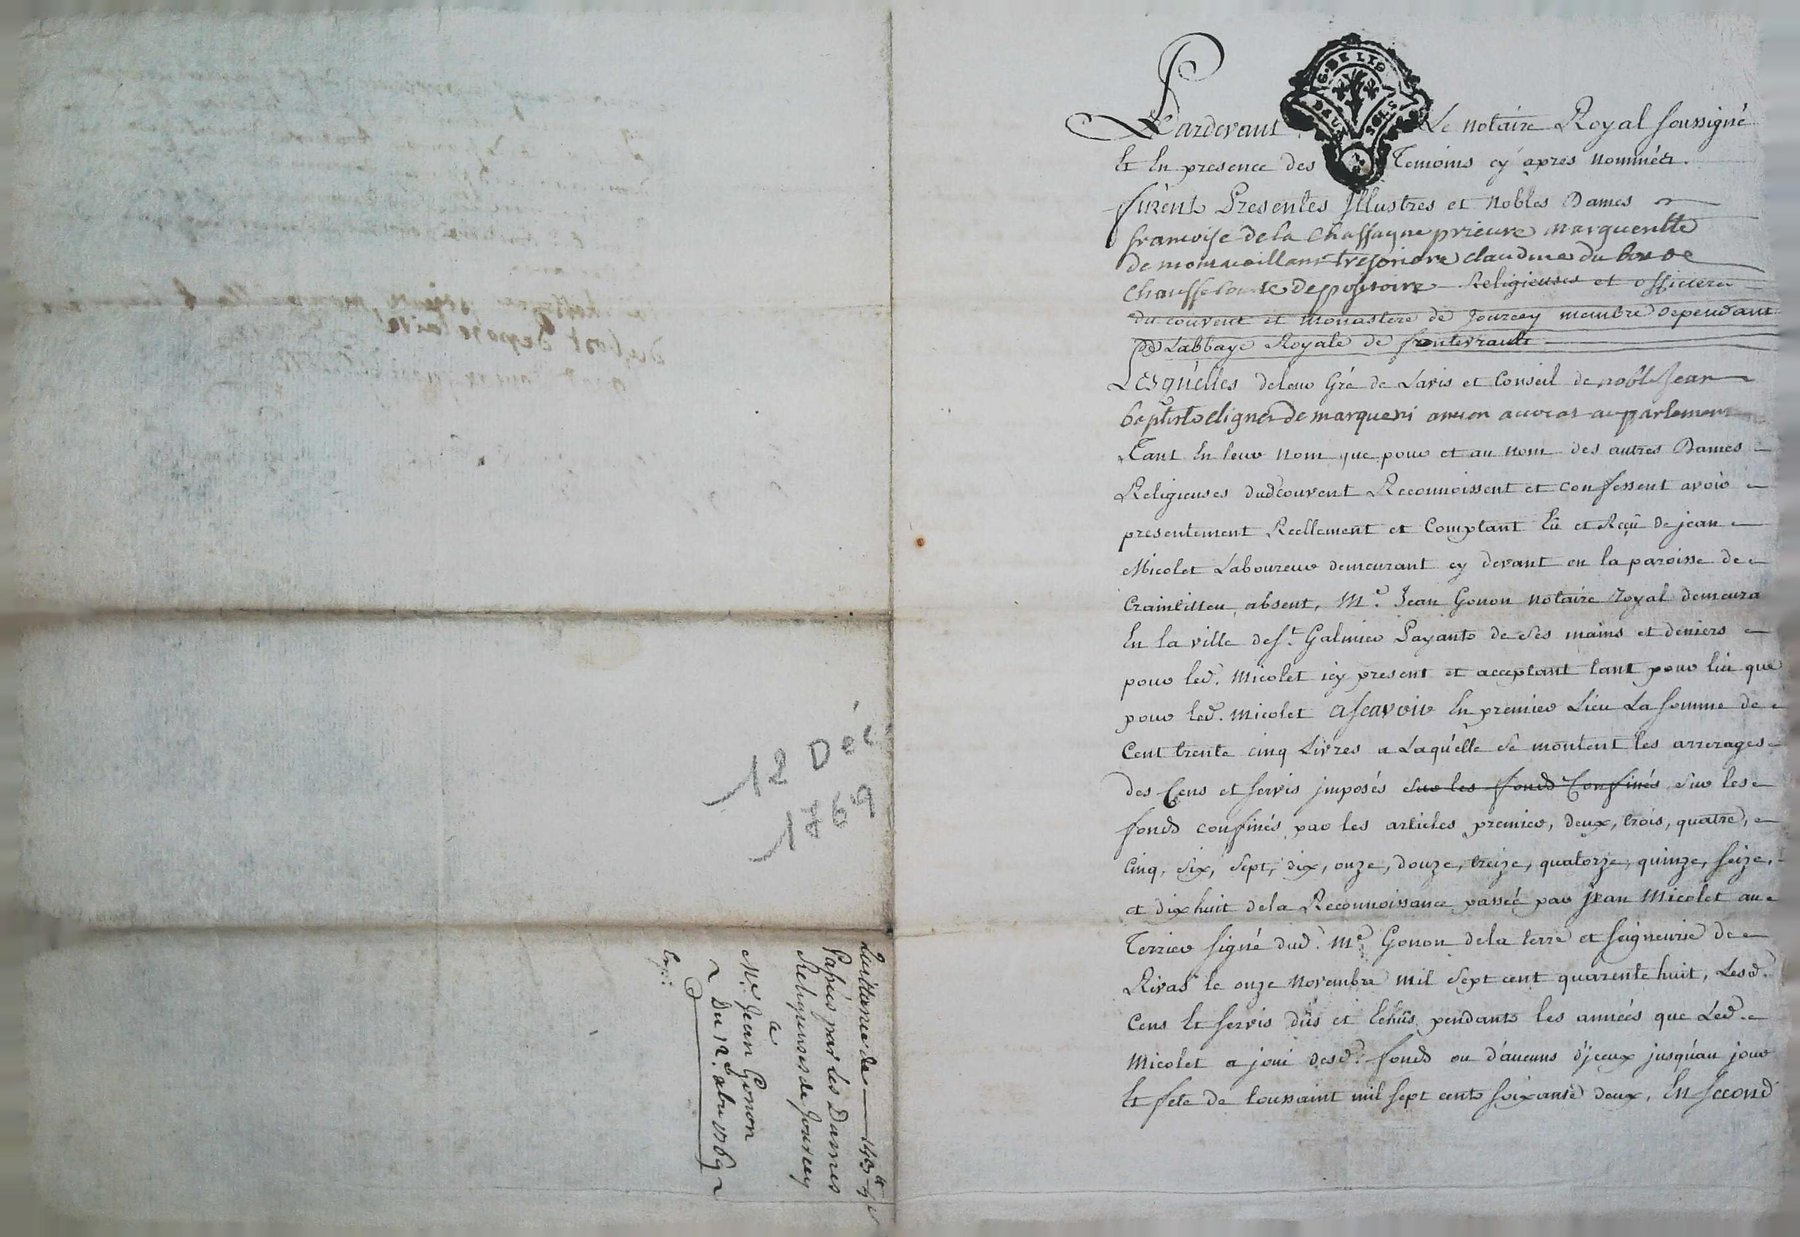 12 Déc
1769
Quittance de
Passée par Les Dames
Religieuses de Jourcey
a
Me. Jean Gonon
Du 12e. xbre 1769
G. DE LYO
Pardevant Le notaire Royal soussigné
Et En presence des Temoins cy apres nommés.
furent Presentes Illustres et nobles Dames
francoise de la Chassagne prieure margueritte
de tresoriere claudine du bos de
depositaire Religieuses et officieres
du couvent et monastere de Jourcey membre dependant
de Labbaye Royale de fontevrault
Lesquelles de leur Gré de Lavis et Conseil de noble Jean
baptiste de ancien avocat au parlement
Tant En leur nom que pour et au nom des autres Dames
Religieuses dud. couvent Reconnoissent et confessent avoir
presentement Reellement et Comptant Eû et Reçû de jean
Micolet Laboureur demeurant cy devant en la paroisse de
Craintilleu absent, Me. Jean Gonon notaire royal demeura
En la ville de St. Galmier Payants de ses mains et deniers
pour led. Micolet icy present et acceptant tant pour lui que
pour led. Micolet ascavoir En premier Lieu La somme de
Cent trente cinq Livres a Laquelle se montent les arrerages
des Cens et servis jmposés sur les fonds Confinés sur les
fonds confinés par les articles premier, deux, trois, quatre,
cinq, six, sept, dix, onze, douze, treize, quatorze, quinze, seize,
et dixhuit de la Reconnoissance passée par jean Micolet au
Terrier signé dud. Me. Gonon de la terre et seigneurie de
Rivas le onze novembre mil sept cent quarente huit, Lesd.
Cens Et servis dûs et Echûs pendants les années que Led.
Micolet a joui desd. fonds ou d'aucuns d'jceux jusqu'au jour
Et fete de toussaint mil sept cents soixante deux, En second